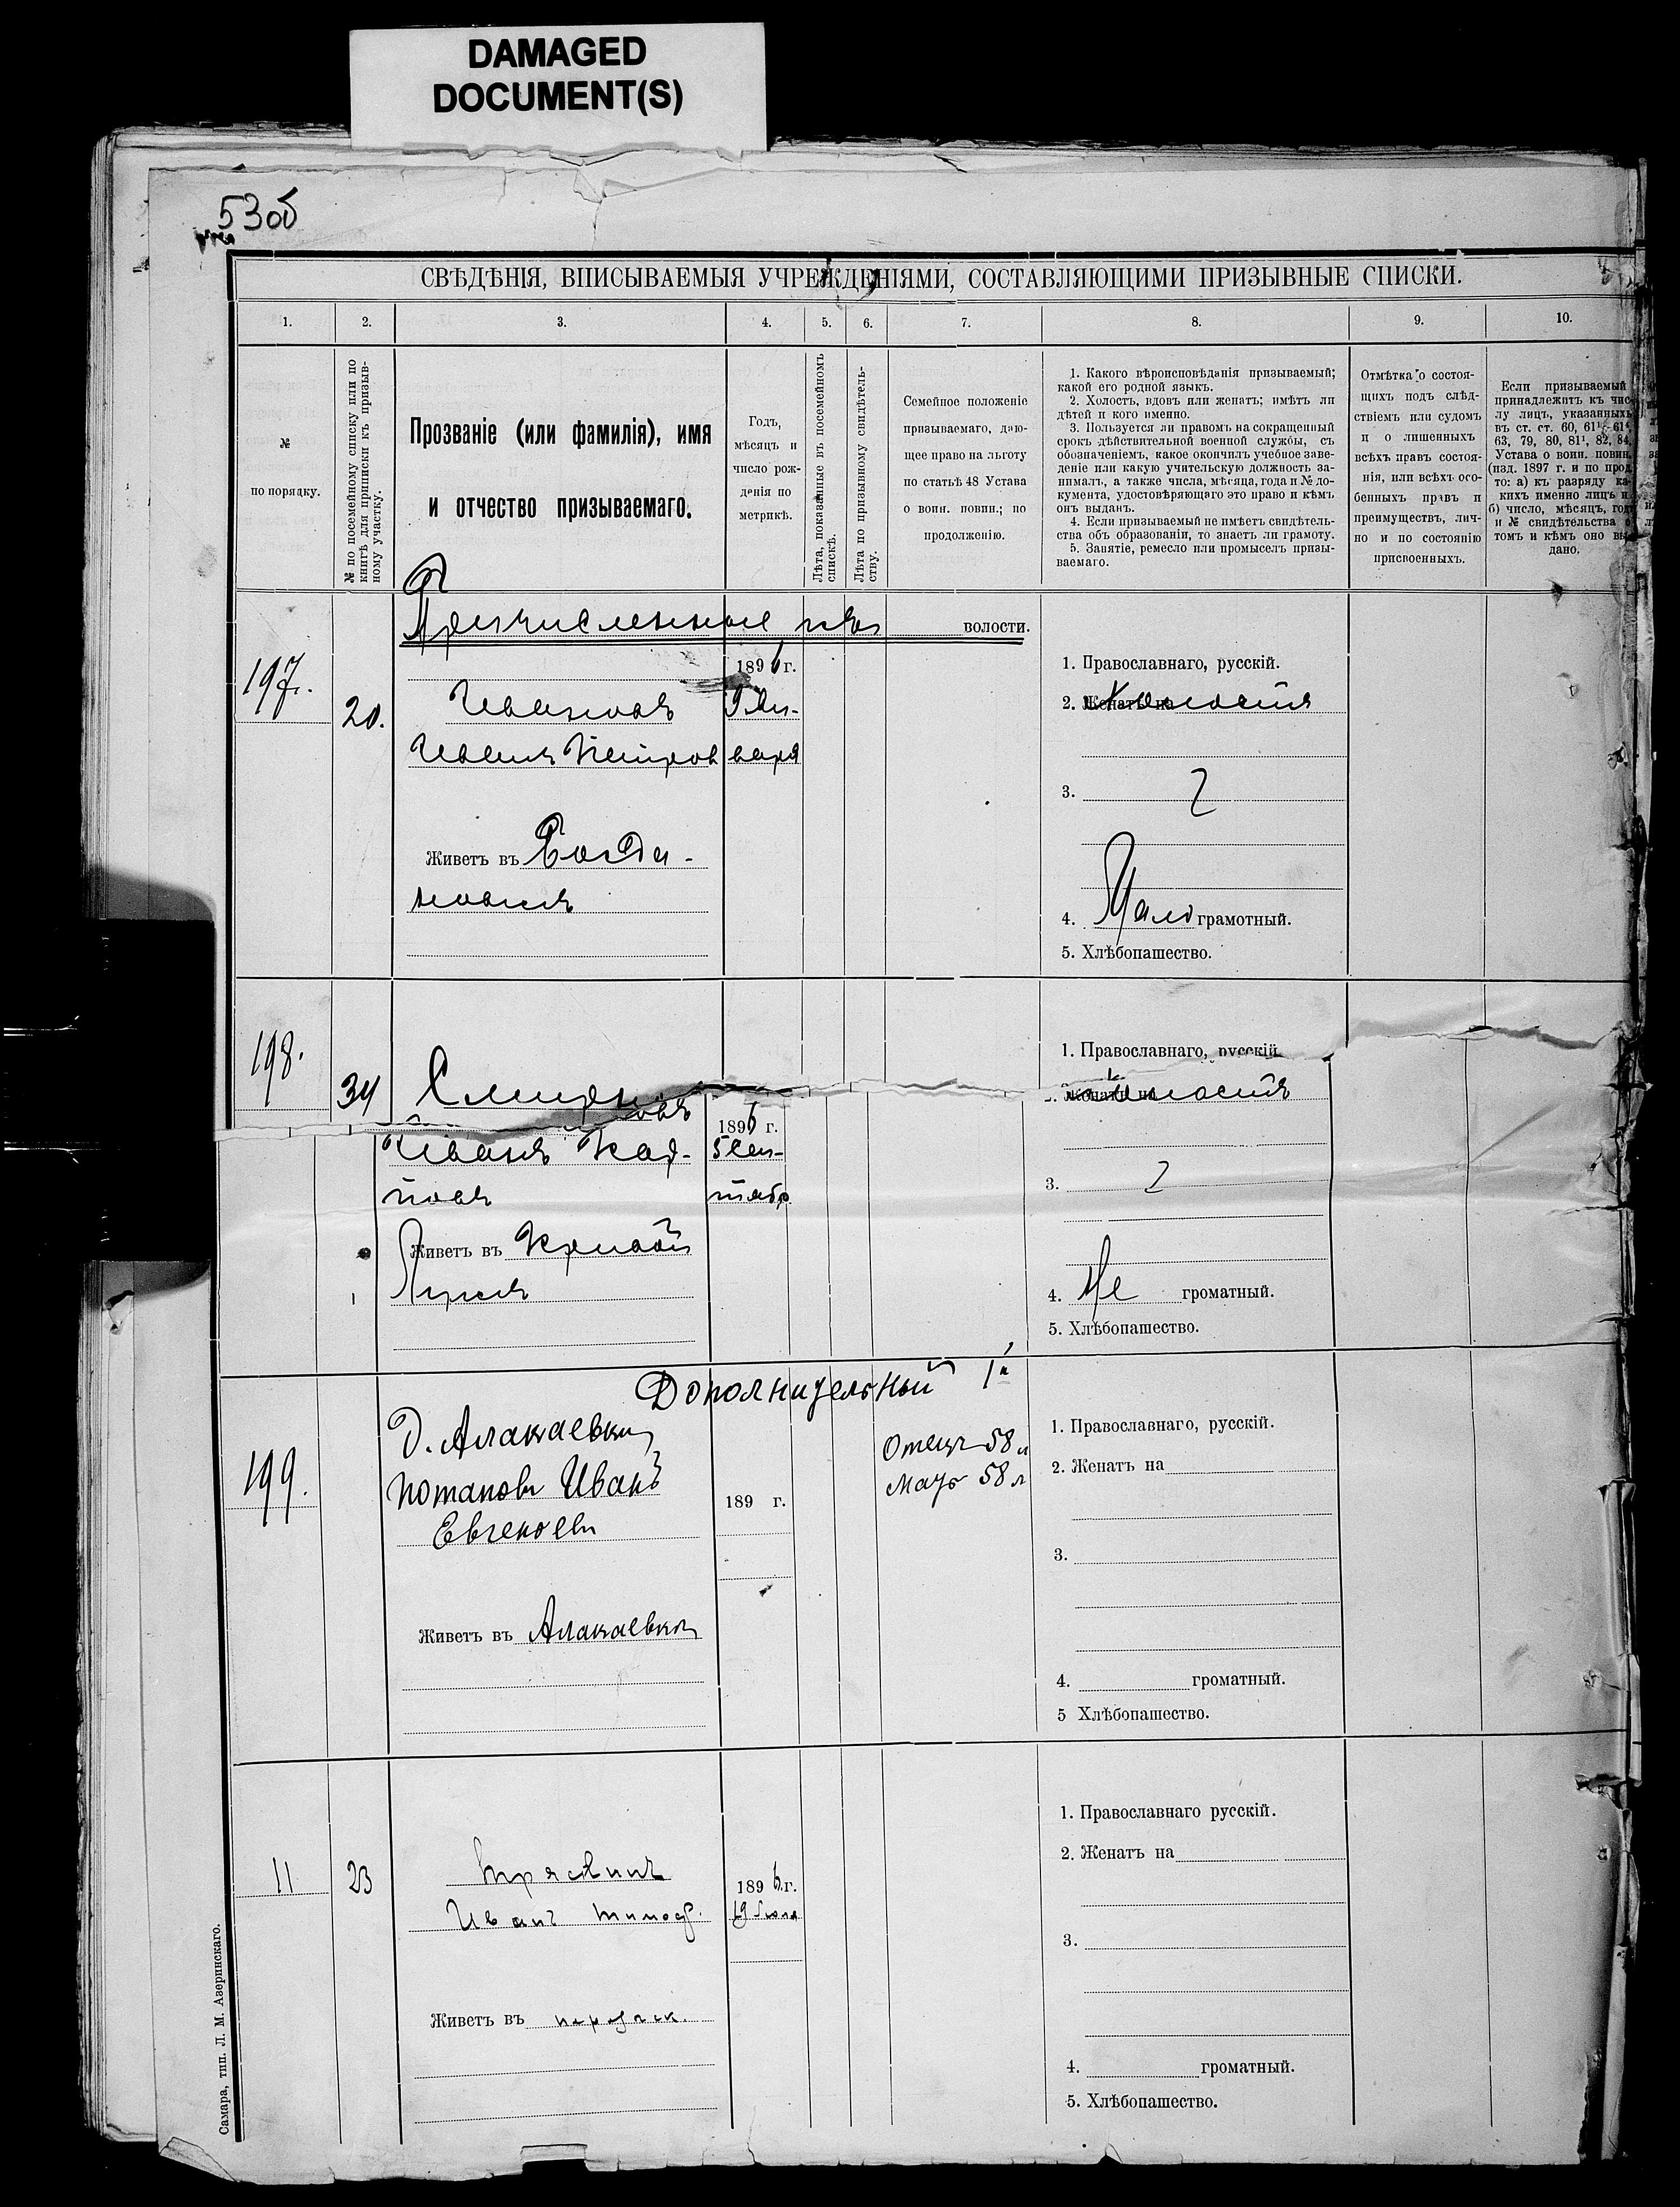 DAMAGED
DOCUMENT(S)
53об
СВѢДѢНІЯ, ВПИСЫВАЕМЫЯ УЧРЕЖДЕНІЯМИ, СОСТАВЛЯЮЩИМИ ПРИЗЫВНЫЕ СПИСКИ.
1. 2. 3. 4. 5. 6. 7. 8. 9. 10.
№
по порядку.
№ по посемейному списку или по
книгѣ для приписки къ призыв-
ному участку.
Прозваніе (или фамилія), имя
и отчество призываемаго.
Годъ,
мѣсяцъ и
число рож-
денія по
метрикѣ.
Лѣта, показанные въ посемейномъ
спискѣ.
Лѣта по призывному свидѣтель-
ству.
Семейное положеніе
призываемаго, даю-
щее право на льготу
по статьѣ 48 Устава
о воин. повин.; по
продолженію.
1. Какого вѣроисповѣданія призываемый;
какой его родной языкъ.
2. Холостъ, вдовъ или женатъ; имѣтъ ли
дѣтей и кого именно.
3. Пользуется ли правомъ на сокращенный
срокъ дѣйствительной военной службы, съ
обозначеніемъ, какое окончилъ учебное заве-
деніе или какую учительскую должность за-
нималъ, а также числа, мѣсяца, года и № до-
кумента, удостовѣряющаго это право и кѣмъ
онъ выданъ.
4. Если призываемый не имѣетъ свидѣтель-
ства объ образованіи, то знаетъ ли грамоту.
5. Занятіе, ремесло или промыселъ призы-
ваемаго.
Отмѣтка о состоя-
щихъ подъ слѣд-
ствіемъ или судомъ
и о лишенныхъ
всѣхъ правъ состоя-
нія, или всѣхъ осо-
бенныхъ правъ и
преимуществъ, лич-
но и по состоянію
присвоенныхъ.
Если призываемый
принадлежитъ къ чис
лу лицъ, указанныхъ
въ ст. ст. 60, 61¹-61⁴,
63, 79, 80, 81¹, 82, 84,
Устава о воин. повин.
(изд. 1897 г. и по прод.
то: а) къ разряду ка-
кихъ именно лицъ и
б) число, мѣсяцъ, год
и № свидѣтельства о
томъ и кѣмъ оно вы-
дано.
Причисленные волости.
197. 20.
1896 г.
Ивановъ 9 Ян-
Иванъ Петров варя
Живетъ въ Богда-
новкѣ
1. Православнаго, русскій.
2. Женатъ на Холостъ
3.
4. Мало грамотный.
5. Хлѣбопашество.
198. 34
Смирновъ 1896 г.
Иванъ Кар- 5 Сен-
повъ тябр
Живетъ въ Кривой
Лукѣ
1. Православнаго, русскій
Женатъ на Холостъ
3.
4. Не громатный.
5. Хлѣбопашество.
Дополнительный 1й
199.
д. Алакаевки
Потаповъ Иванъ 189 г.
Евгеноевъ
Живетъ въ Алакаевкѣ
Отецъ 58 л
Мать 58 л
1. Православнаго, русскій.
2. Женатъ на
3.
4. громатный.
5 Хлѣбопашество.
11 23
1896 г.
Иванъ Тимоф. 19 Іюля
Живетъ въ
1. Православнаго русскій.
2. Женатъ на
3.
4. громатный.
5. Хлѣбопашество.
Самара, тип. Л. М. Азеринскаго.